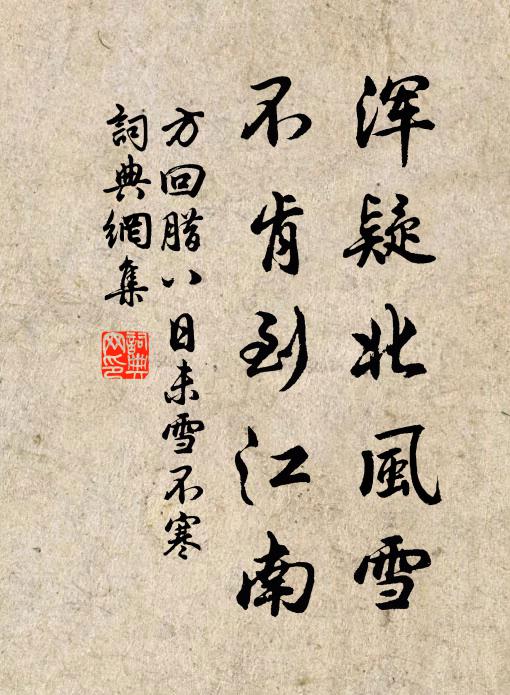 浑疑北風雪
不肯到江南
方回腊八日未雪不寒
詞典網集
詞典網印